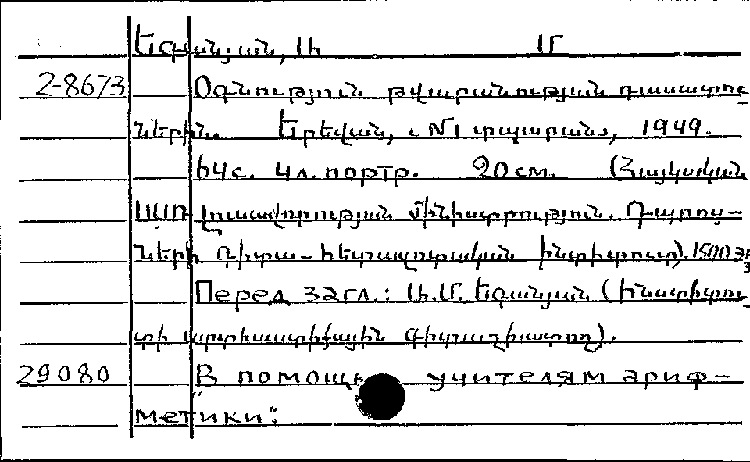 Եզանյան, Ա Մ
2-8673 Օգնություն թվաբանության դասատու-
ներին. Երեվան, №1 տպարան, 1949.
64 с. 4 л. портр. 20 см. (Հայկական
ՍՍՌ Լուսավորության մինիստրություն. Դպրոց-
ների Գիտա-հետազոտական ինստիտուտ). 1500 эк
Перед загл.: Ա. Մ. Եզանյան (Ինստիտու-
տի գիտաշխատող).
29080 В помощь учителям ариф-
метики".